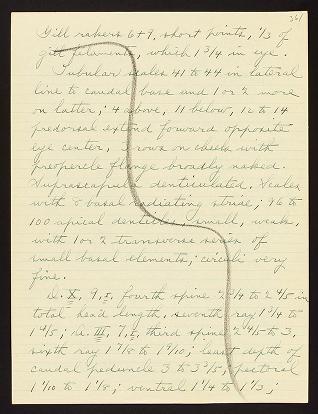 361
Gill rakers 6+9, short points, 1/3 of
gill filaments, which 1 3/4 in eye.
Tubular scales 41 to 44 in lateral
line to caudal base and 1 or 2 more
on latter; 4 above, 11 below, 12 to 14
predorsal extend forward opposite
eye center, 3 rows on cheek with
preopercle flange broadly naked.
Suprascapula denticulated. Scales
with 6 basal radiating striae; 96 to
100 apical denticles, small, weak,
with 1 or 2 transverse series of
small basal elements; circuli very
fine.
D. X, 9, I, fourth spine 2 1/4 to 2 4/5 in
total head length, seventh ray 1 3/4 to
1 4/5; A. III, 7, I, third spine 2 4/5 to 3,
sixth ray 1 7/8 to 1 9/10; least depth of
caudal peduncle 3 to 3 2/5; pectoral
1 1/10 to 1 1/8; ventral 1 1/4 to 1 1/3;